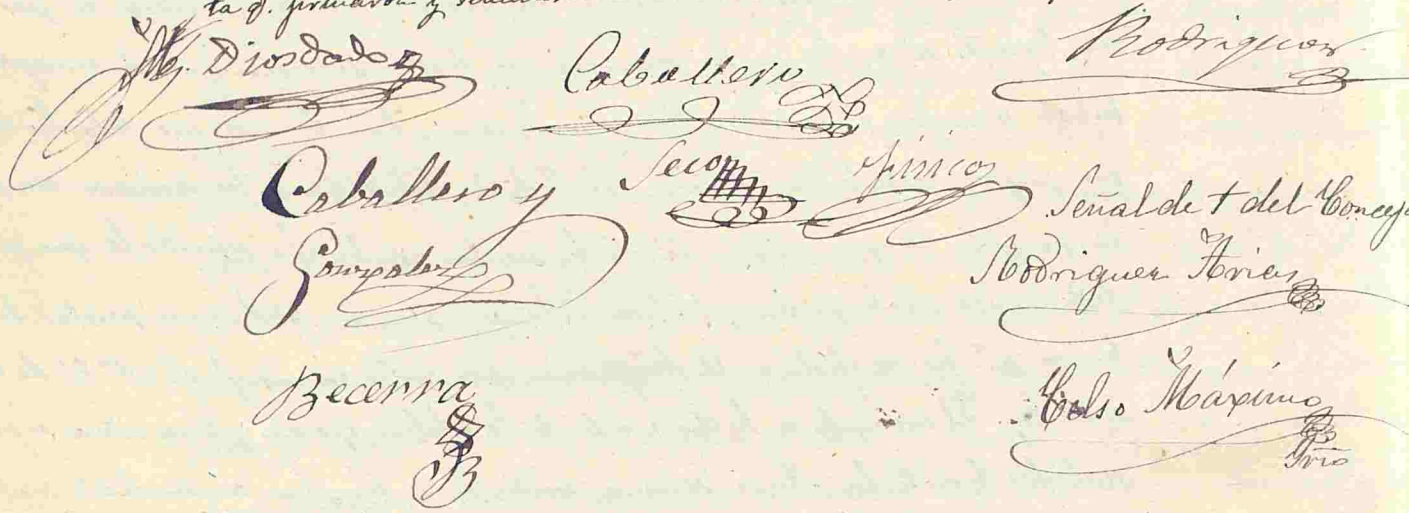 ta q. firmaron y
M. Diosdado Caballero Rodriguez
Caballero y Seco Señal de + del Concej
Gonzalez Rodriguez Arias
Becerra Celso Máximo
Srio